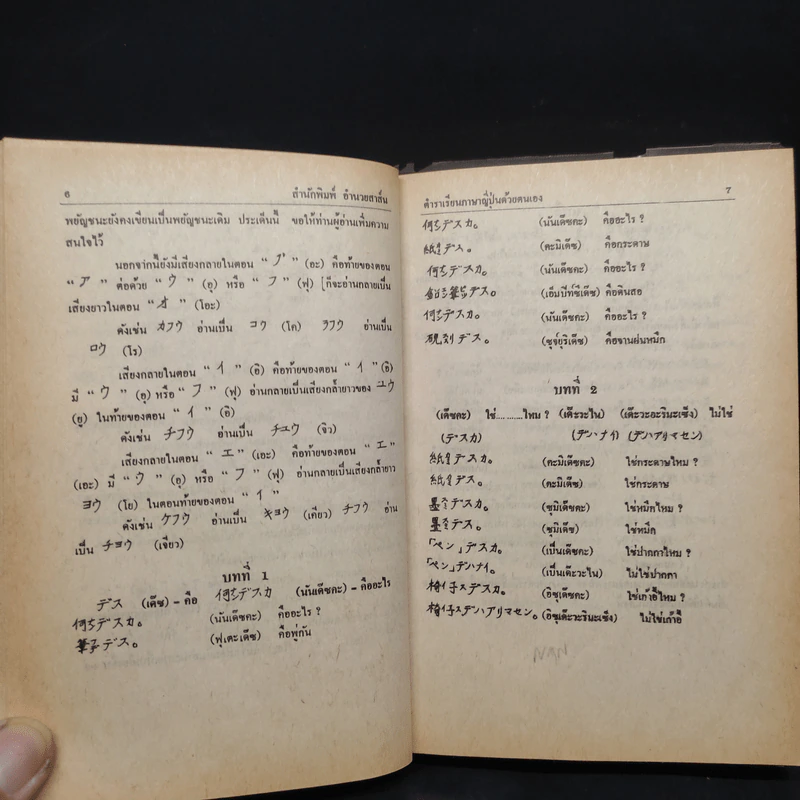 6 สำนักพิมพ์ อำนวยสาส์น
พยัญชนะยังคงเขียนเป็นพยัญชนะเดิม ประเด็นนี้ ขอให้ท่านผู้อ่านเพิ่มความ
สนใจไว้
นอกจากนี้ยังมีเสียงกลายในตอน “ア” (อะ) คือท้ายของตอน
“ア” ต่อด้วย “ウ” (อุ) หรือ “フ” (ฟุ) ก็จะอ่านกลายเป็น
เสียงยาวในตอน “オ” (โอะ)
ดังเช่น カフウ อ่านเป็น コウ (โค) ラフウ อ่านเป็น
ロウ (โร)
เสียงกลายในตอน “イ” (อิ) คือท้ายของตอน “イ” (อิ)
มี “ウ” (อุ) หรือ “フ” (ฟุ) อ่านกลายเป็นเสียงกล้ำยาวของ ユウ
(ยู) ในท้ายของตอน “イ” (อิ)
ดังเช่น チフウ อ่านเป็น チユウ (จิว)
เสียงกลายในตอน “エ” (เอะ) คือท้ายของตอน “エ”
(เอะ) มี “ウ” (อุ) หรือ “フ” (ฟุ) อ่านกลายเป็นเสียงกล้ำยาว
ヨウ (โย) ในตอนท้ายของตอน “イ”
ดังเช่น ケフウ อ่านเป็น キヨウ (เคียว) チフウ อ่าน
เป็น チヨウ (เจียว)
บทที่ 1
デス (เด๊ซ) – คือ 何デスカ (นันเด๊ซคะ) – คืออะไร
何デスカ。 (นันเด๊ซคะ) คืออะไร ?
筆デス。 (ฟุเดะเด๊ซ) คือพู่กัน
ตำราเรียนภาษาญี่ปุ่นด้วยตนเอง 7
何デスカ。 (นันเด๊ซคะ) คืออะไร ?
紙デス。 (คะมิเด๊ซ) คือกระดาษ
何デスカ。 (นันเด๊ซคะ) คืออะไร ?
鉛筆デス。 (เอ็มปิทซ์ซึเด๊ซ) คือดินสอ
何デスカ。 (นันเด๊ซคะ) คืออะไร ?
硯デス。 (ซุซุริเด๊ซ) คือจานฝนหมึก
บทที่ 2
(เด๊ซคะ) ใช่..........ไหม ? (เด๊ะวะไน) (เด๊ะวะอะริมะเซ็ง) ไม่ใช่
(デスカ) (デハナイ) (デハアリマセン)
紙デスカ。 (คะมิเด๊ซคะ) ใช่กระดาษไหม ?
紙デス。 (คะมิเด๊ซ) ใช่กระดาษ
墨デスカ。 (ซุมิเด๊ซคะ) ใช่หมึกไหม ?
墨デス。 (ซุมิเด๊ซ) ใช่หมึก
「ペン」デスカ。 (เป็นเด๊ซคะ) ใช่ปากกาไหม ?
「ペン」デハナイ。 (เป็นเด๊ะวะไน) ไม่ใช่ปากกา
椅子デスカ。 (อิซุเด๊ซคะ) ใช่เก้าอี้ไหม ?
椅子デハアリマセン。 (อิซุเด๊ะวะริมะเซ็ง) ไม่ใช่เก้าอี้